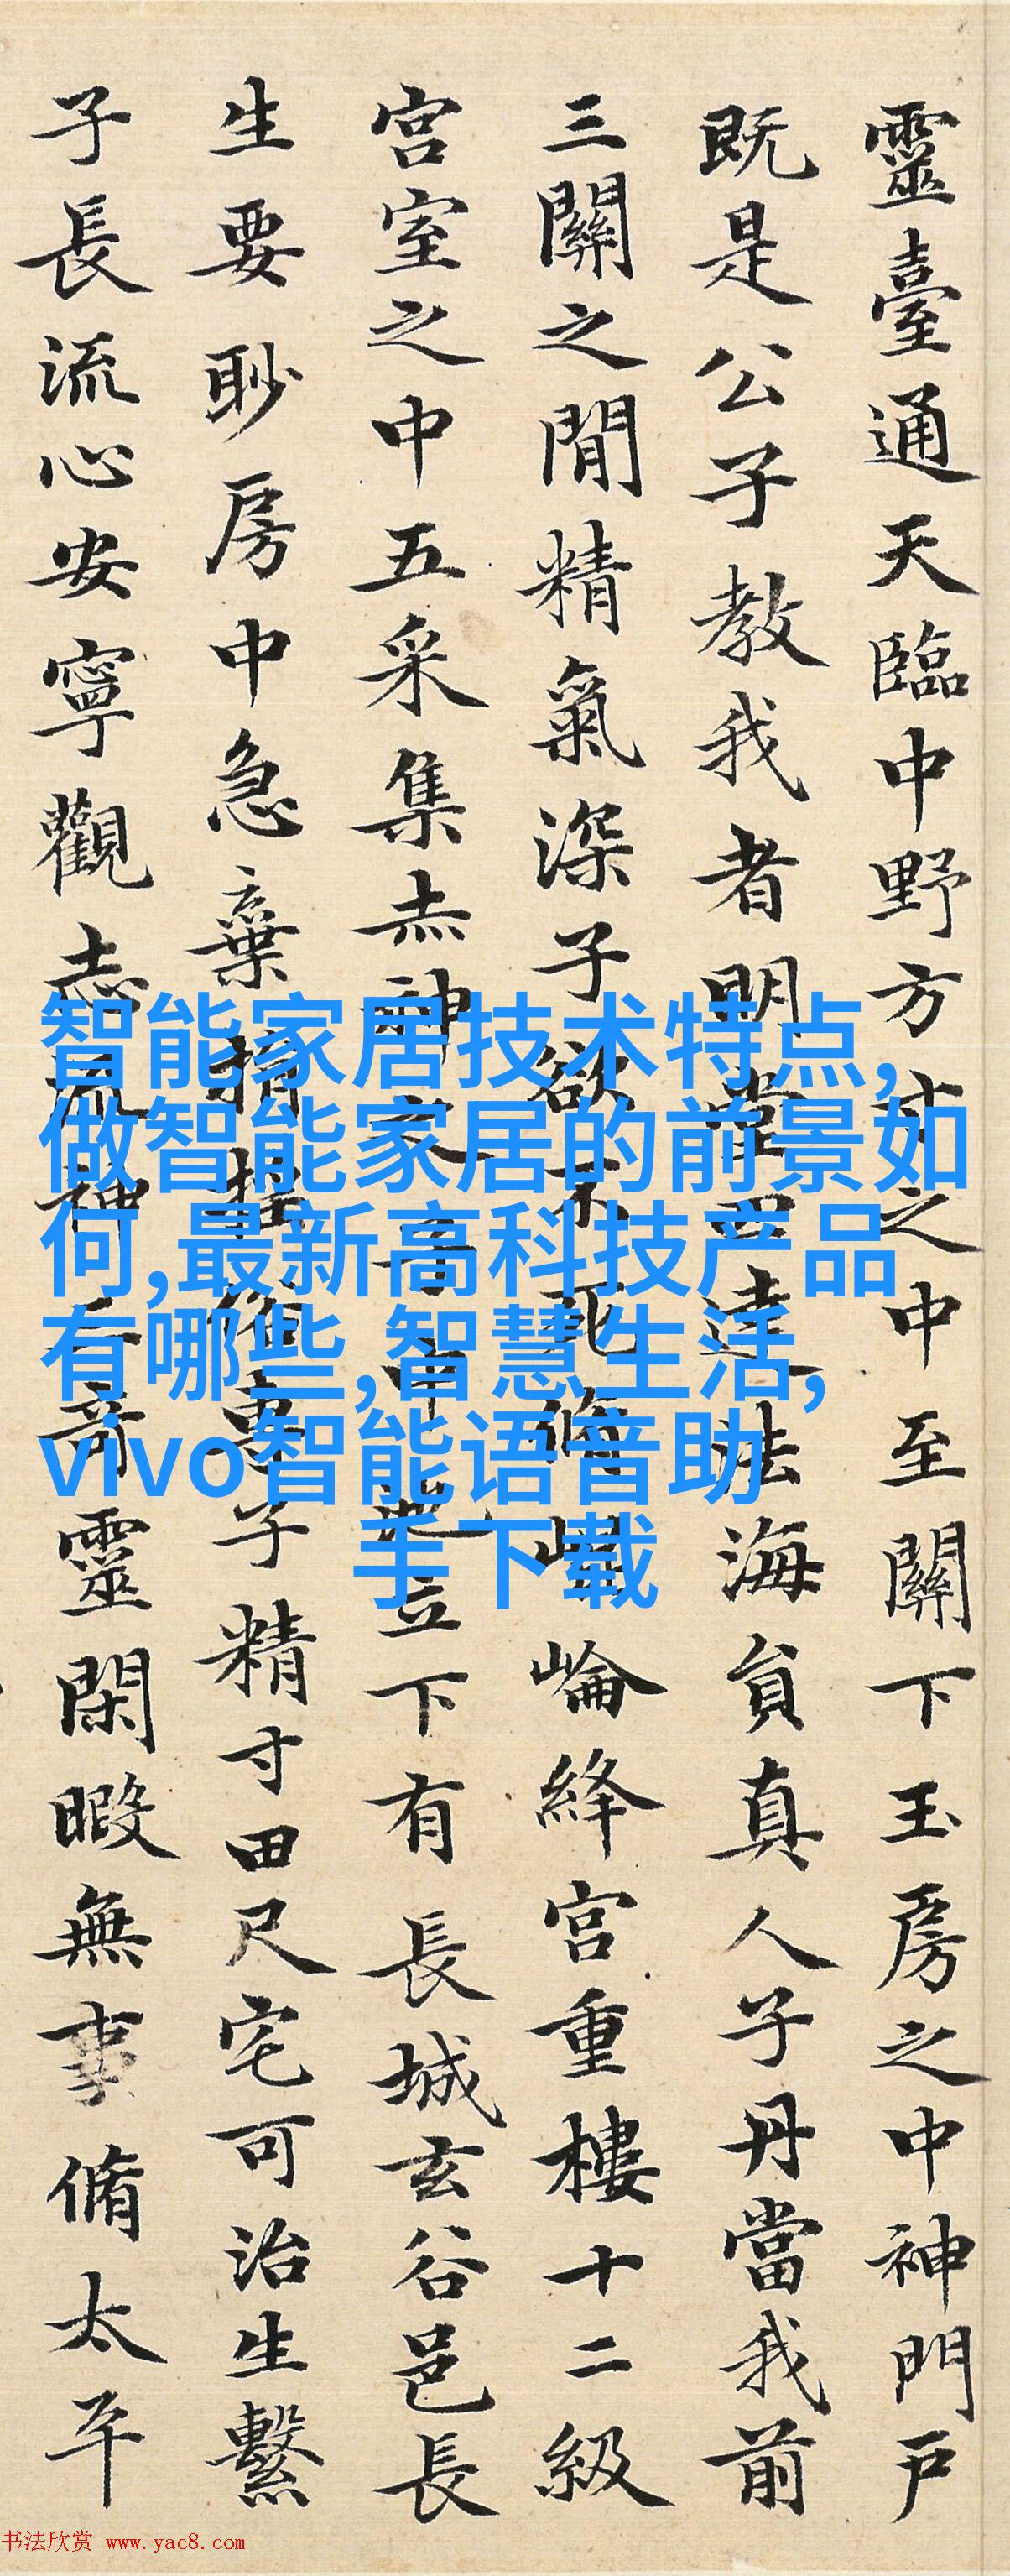 靈臺通天臨中野方寸之中至關下玉房之中神門戶
既是公子教我者明堂四達法海員真人子丹當我前
三關之閒精氣深子欲不死脩崐崘絳宮重樓十二級
宮室之中五采集赤神之子中池立下有長城玄谷邑長
生要眇房中急棄捐俗專子精寸田尺宅可治生繫
子長流心安寧觀志流神三奇靈閑暇無事脩太平
智能家居技术特点,
做智能家居的前景如
何,最新高科技产品
有哪些,智慧生活,
vivo智能语音助
手下载
书法欣赏 www.yac8.com